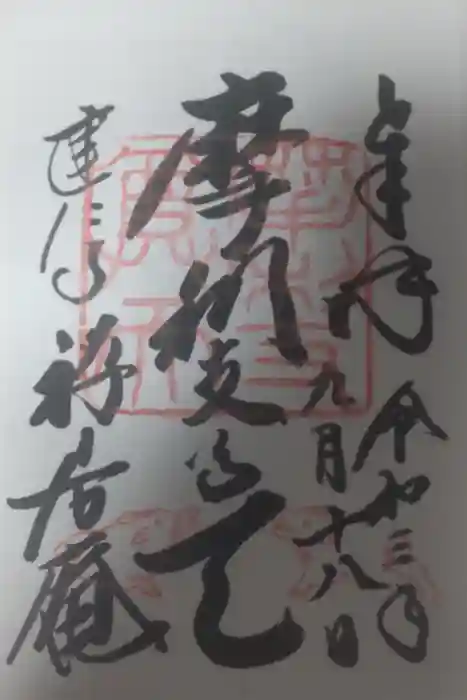 奉拝 令和三年
九月十八日
摩利支尊天
建仁寺 禅居庵